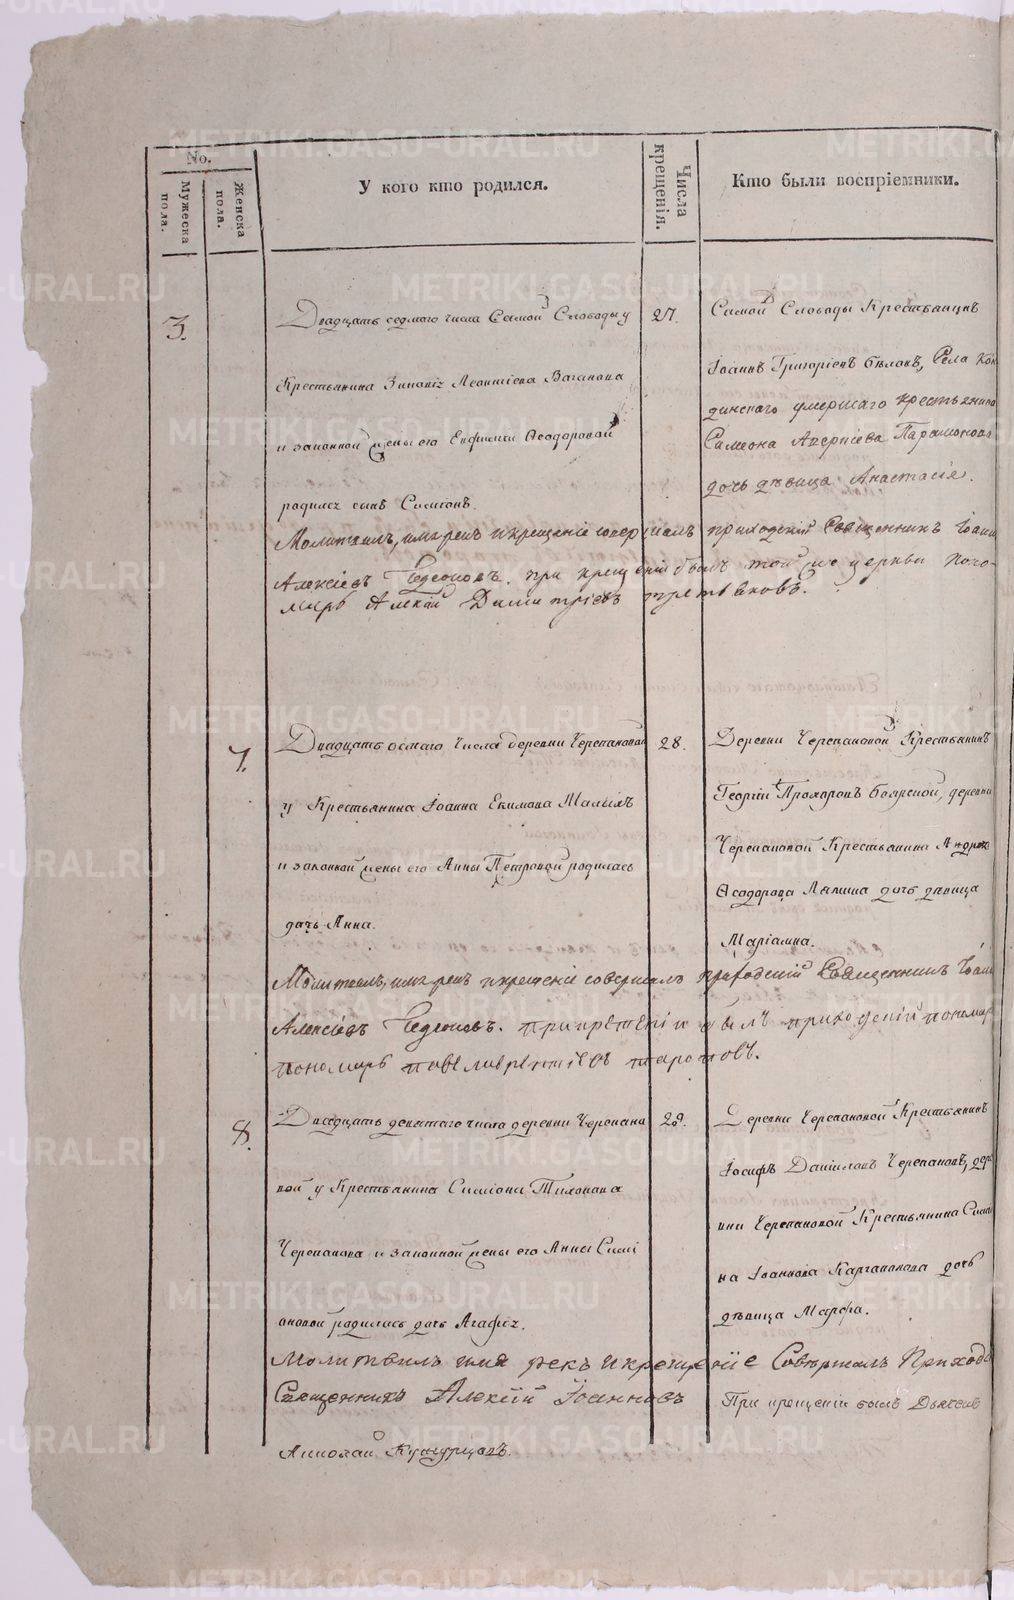 No.
Мужеска пола.
Женска пола.
У кого кто родился.
Числа крещенія.
Кто были воспріемники.
3.
Двадцать седмого числа Самой Слободы у
Крестьянина Зиновія Леонтіева Ваганова
и законной жены его Евфиміи Ѳеодоровой
родился сынъ Симеонъ.
27.
Самой Слободы Крестьянинъ
Іоаннъ Григоріевъ Бѣловъ, Села Кон
динскаго умершаго крестьянина
Симеона Аверкіева Парамонова
дочь дѣвица Анастасія.
Молитвилъ, имя рекъ и крещеніе совершалъ приходскій Священникъ Іоаннъ
Алексіевъ. при крещеніи былъ той же церкви поно-
марь Алексій Димитріевъ Третьяковъ.
7.
Двадцать осмаго числа деревни Черепановой
у Крестьянина Іоанна Екимова Малыхъ
и законной жены его Анны Петровой родилась
дочь Анна.
28.
Деревни Черепановой Крестьянинъ
Георгій Прохоровъ Боярской, деревни
Черепановой Крестьянина Андрея
Ѳеодорова Лапина дочь дѣвица
Маріамна.
Молитвилъ, имя рекъ и крещеніе совершалъ приходскій Священникъ Іоаннъ
Алексіевъ. при крещеніи былъ приходскій пономарь
пономарь
8.
Двадцать девятаго числа деревни Черепано
вой у Крестьянина Симеона Тихонова
Черепанова и законной жены его Анны Симе
оновой родилась дочь Агафія.
29.
Деревни Черепановой Крестьянинъ
Іосифъ Даніиловъ Черепановъ, дере
вни Черепановой Крестьянина Симео
на Іоаннова Каргаполова дочь
дѣвица Марфа.
Молитвилъ имя рекъ и крещеніе Совершалъ Приход
Священникъ Алексій Іоанновъ
При крещеніи былъ Дьячекъ
Николай Кунгурцовъ.
METRIKI.GASO-URAL.RU